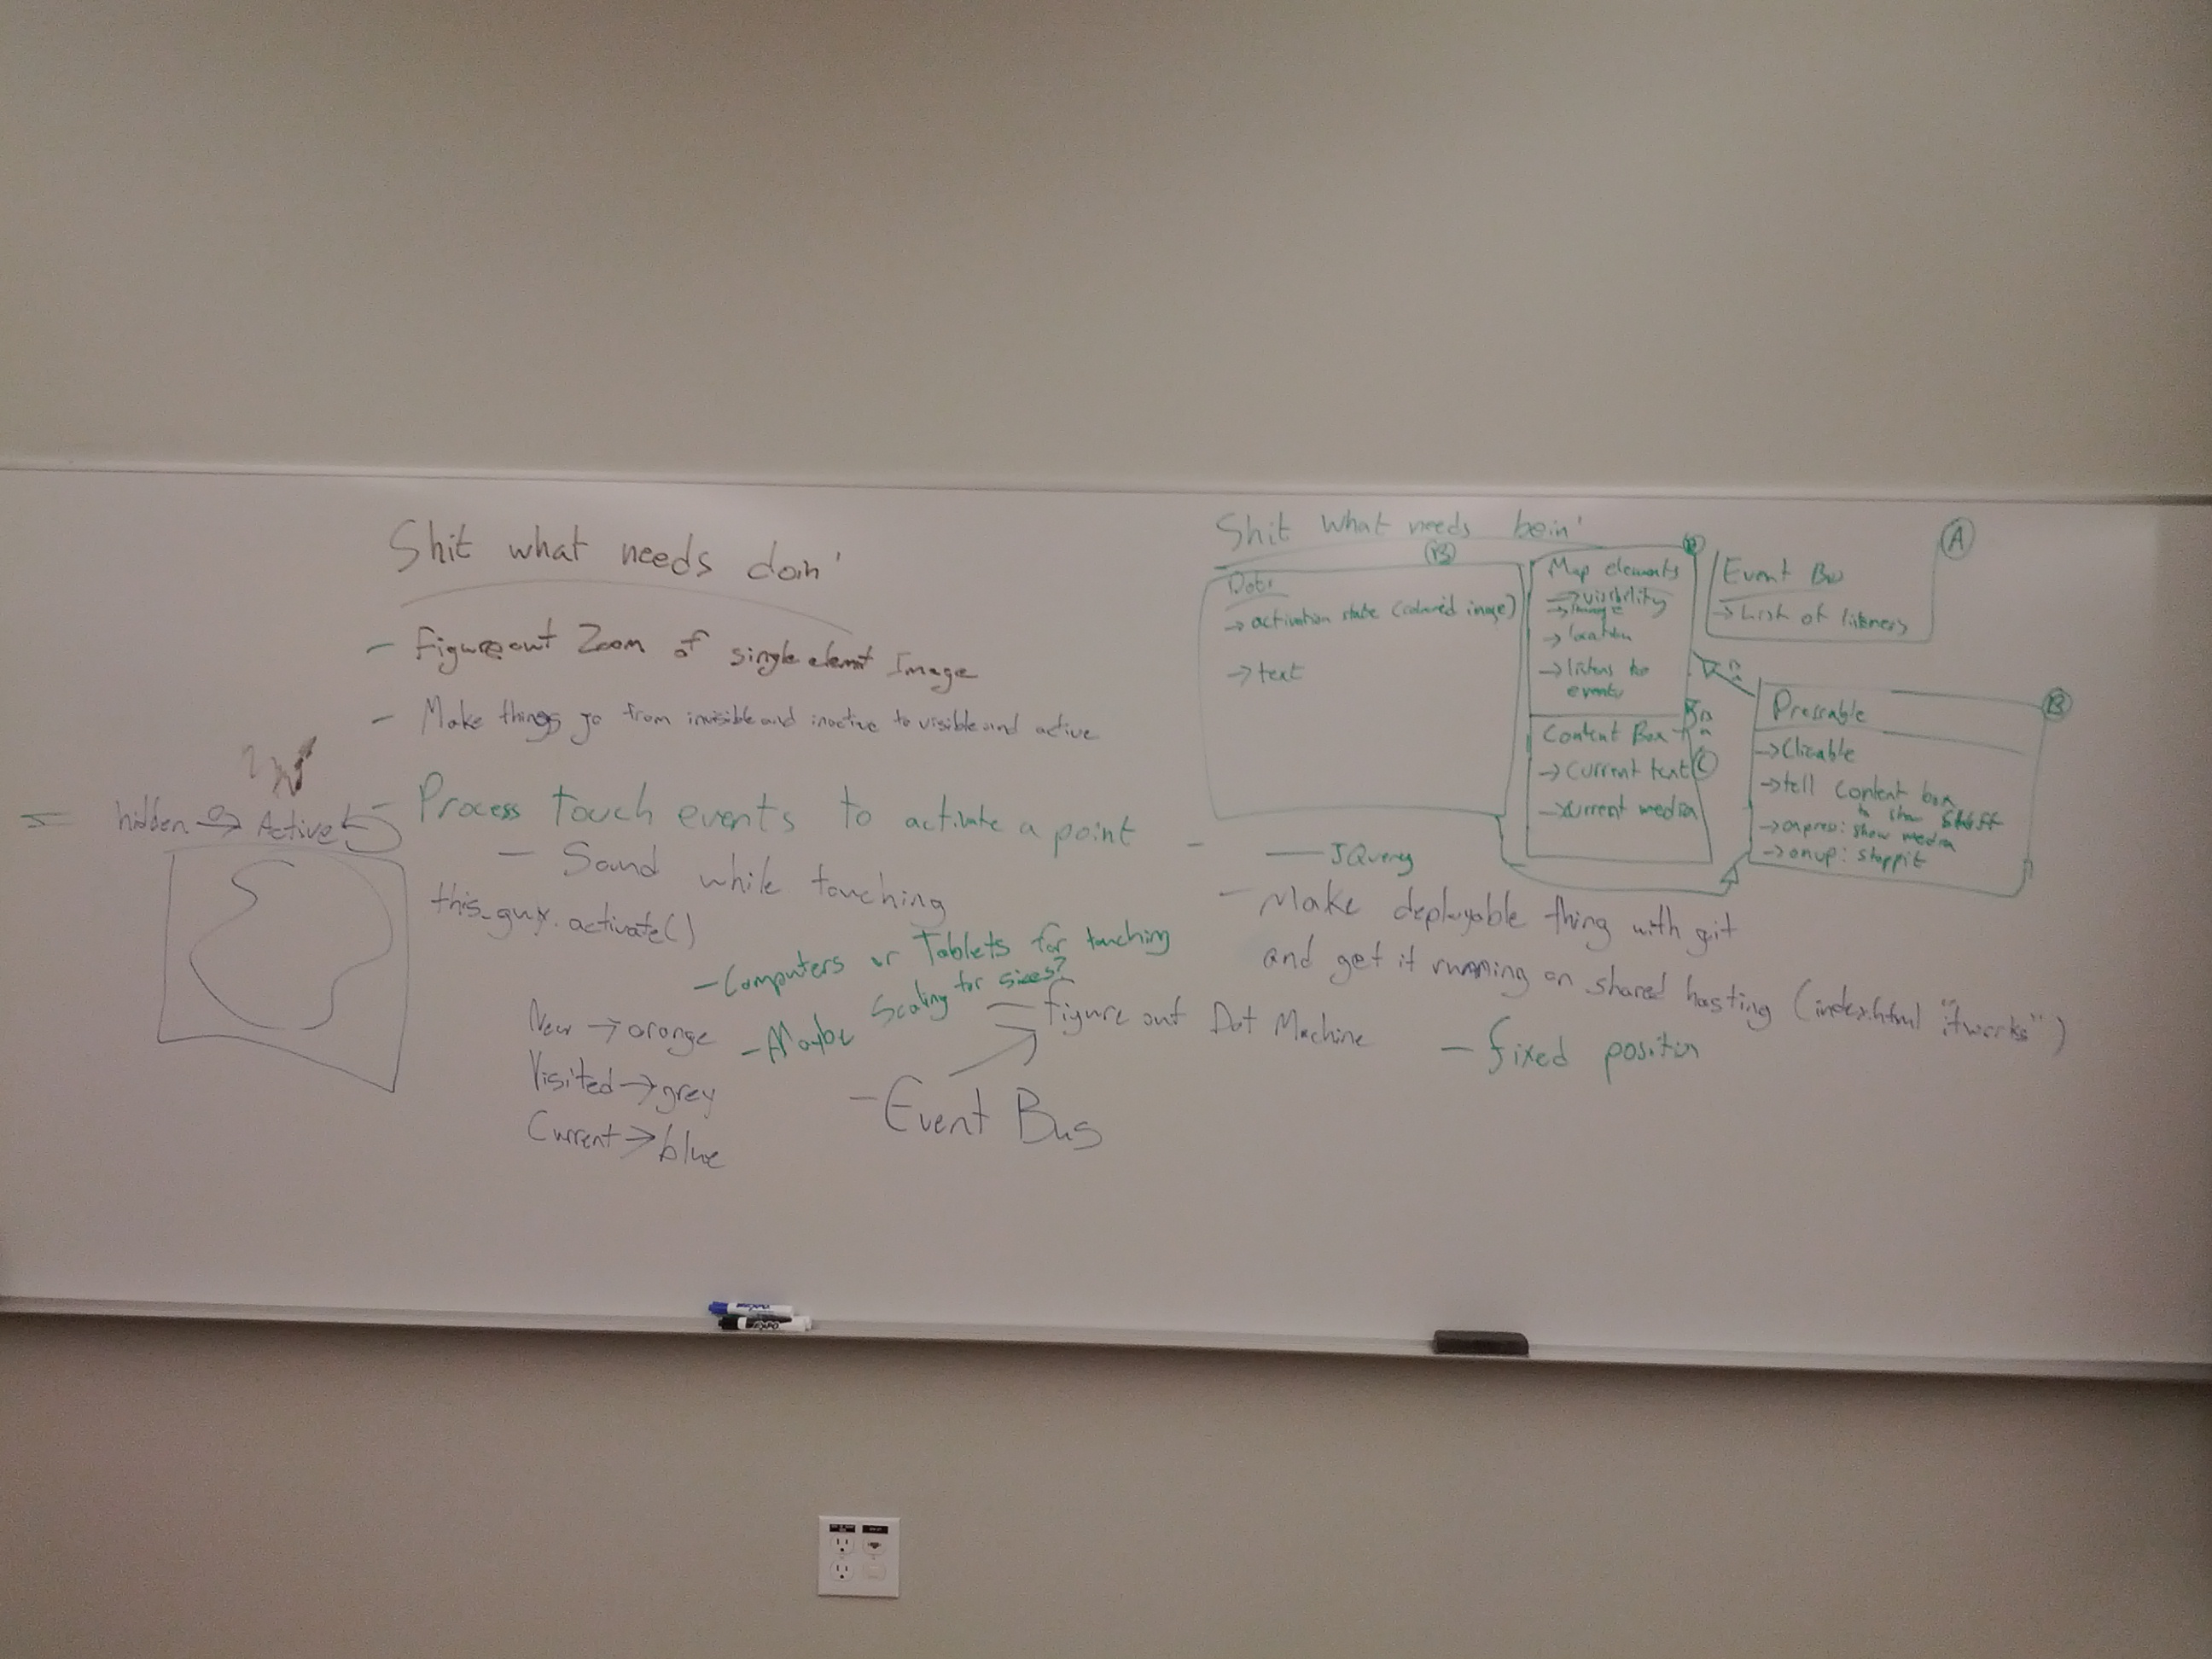 Shit what needs doin'
- Figure out Zoom of single elemnt Image
- Make things go from invisible and inactive to visible and active
hidden → Active
- Process touch events to activate a point
- Sound while touching
this_guy.activate()
- Computers or Tablets for touching
- Maybe Scaling for sizes?
New → orange
Visited → grey
Current → blue
- figure out Dot Machine
- Event Bus
Shit what needs bein'
B
→ activation state (colored image)
→ text
Map elements
→ visibility
→ image
→ location
→ listens to
events
Content Box
→ Current text
C
→ current media
A
Event Bus
→ List of listeners
B
Pressable
→ Clicable
→ tell content box
to show stuff
→ onpress: show media
→ onup: stoppit
- JQuery
- Make deployable thing with git
and get it running on shared hosting (index.html "itworks")
- fixed position